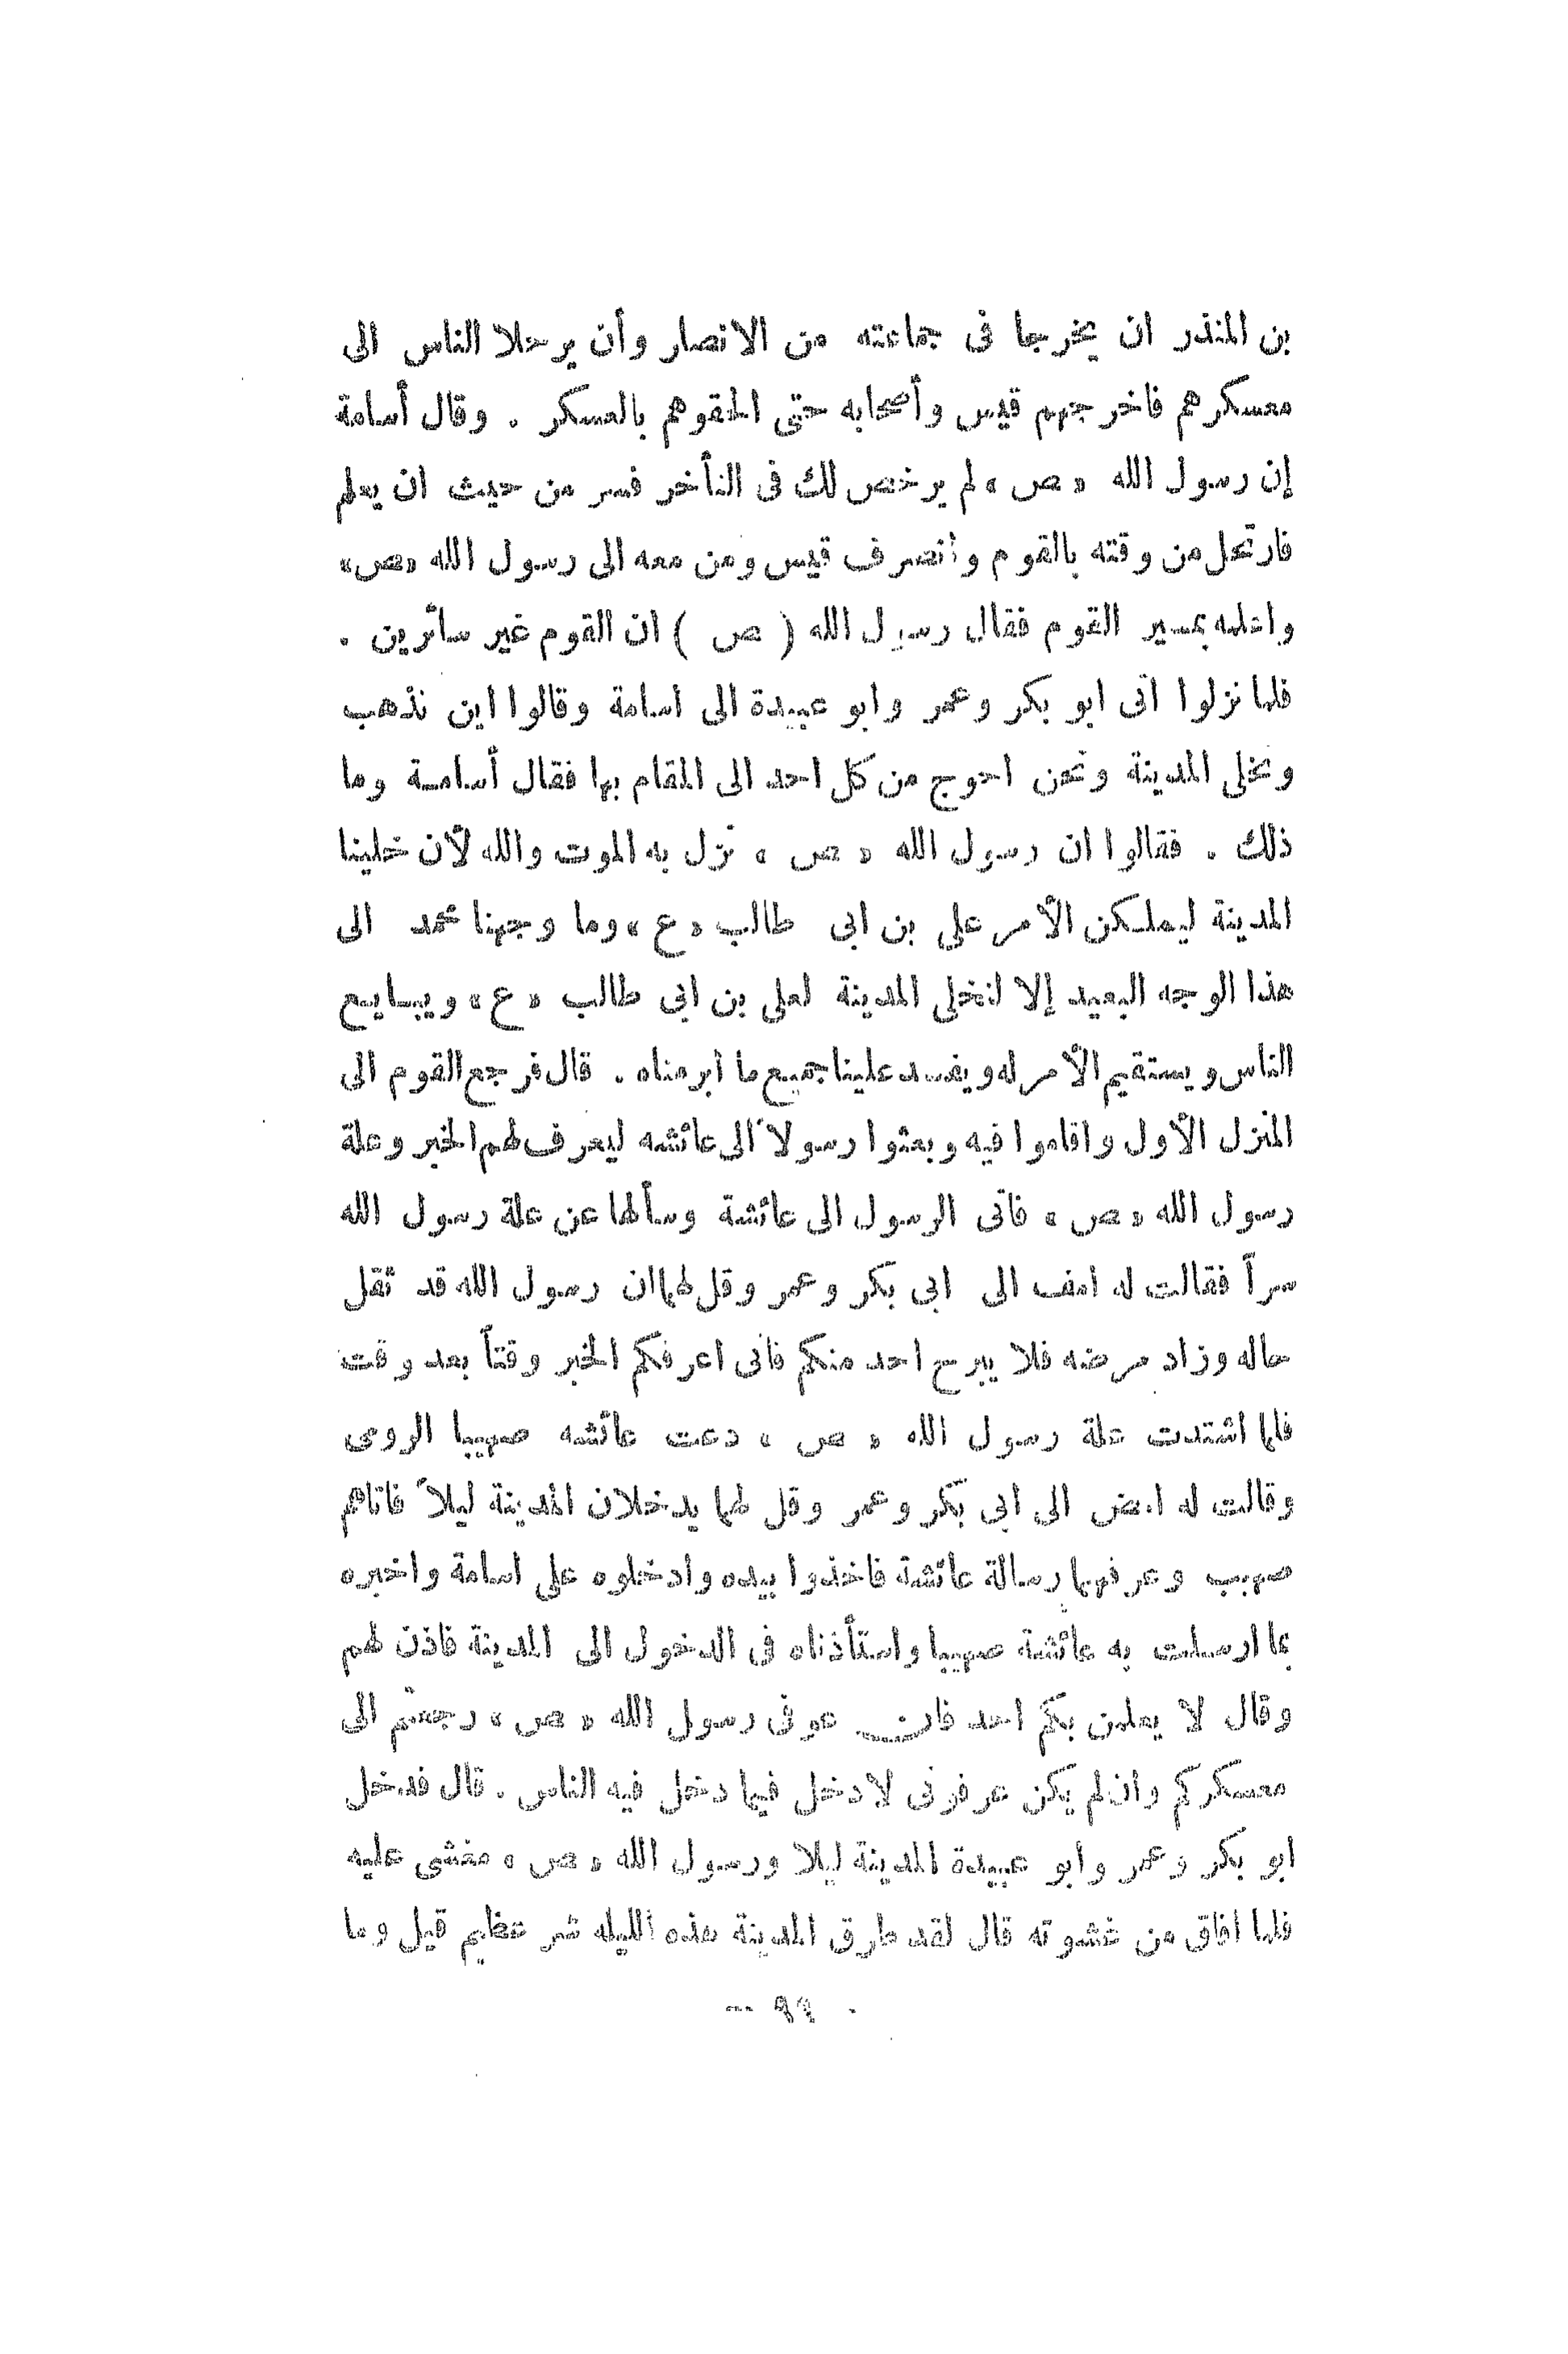 بن المنذر ان يخرجا فى جماعته من الانصار وأن يرحلا الناس الى
معسكرهم فاخرجهم قيس وأصحابه حتى الحقوهم بالعسكر . وقال أسامة
إن رسول الله « ص » لم يرخص لك فى التأخر فسر من حيث ان يعلم
فارتحل من وقته بالقوم وانصرف قيس ومن معه الى رسول الله «ص»
واعلمه بمسير القوم فقال رسول الله ( ص ) ان القوم غير سائرين .
فلما نزلوا اتى ابو بكر وعمر وابو عبيدة الى اسامة وقالوا اين نذهب
ونخلى المدينة ونحن احوج من كل احد الى المقام بها فقال أسامة وما
ذلك . فقالوا ان رسول الله « ص » نزل به الموت والله لأن خلينا
المدينة ليملكن الأمر على بن ابى طالب « ع » وما وجهنا محمد الى
هذا الوجه البعيد إلا لنخلى المدينة لعلى بن ابى طالب « ع » ويبايع
الناس ويستقيم الأمر له ويفسد علينا جميع ما ابرمناه . قال فرجع القوم الى
المنزل الأول واقاموا فيه وبعثوا رسولا الى عائشه ليعرف لهم الخبر وعلة
رسول الله « ص » فاتى الرسول الى عائشة وسألها عن علة رسول الله
سراً فقالت له امض الى ابى بكر وعمر وقل لهما ان رسول الله قد ثقل
حاله وزاد مرضه فلا يبرح احد منكم فانى اعرفكم الخبر وقتاً بعد وقت
فلما اشتدت علة رسول الله « ص » دعت عائشه صهيبا الرومى
وقالت له امض الى ابى بكر وعمر وقل لهما يدخلان المدينة ليلاً فاتاهم
صهيب وعرفهما رسالة عائشة فاخذوا بيده وادخلوه على اسامة واخبره
بما ارسلت به عائشة صهيبا واستأذناه فى الدخول الى المدينة فاذن لهم
وقال لا يعلمن بكم احد فان عوفى رسول الله « ص » رجعتم الى
معسكركم وان لم يكن عرفونى لادخل فيما دخل فيه الناس . قال فدخل
ابو بكر وعمر وابو عبيدة المدينة ليلا ورسول الله « ص » مغشى عليه
فلما افاق من غشوته قال لقد طارق المدينة هذه الليله شر عظيم قيل وما
- ٩٩ -